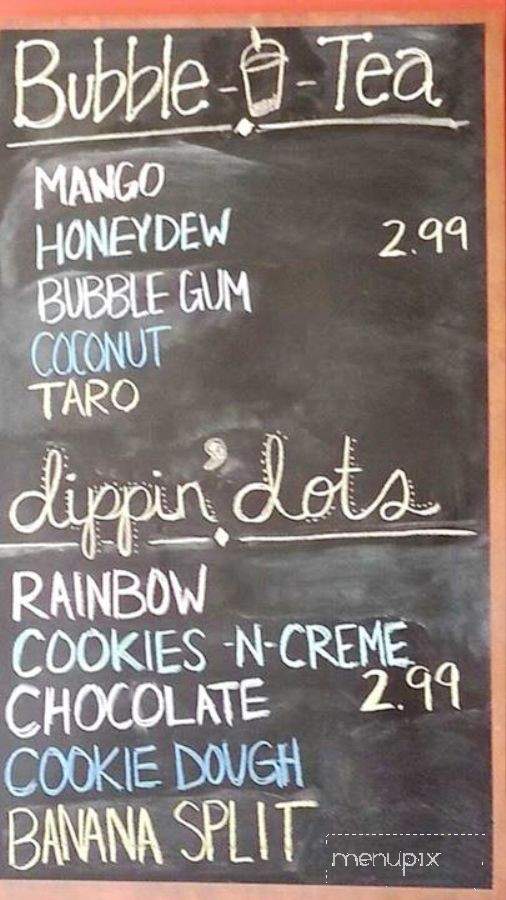 Bubble - Tea
MANGO
HONEYDEW 2.99
BUBBLE GUM
COCONUT
TARO
dippin' dots
RAINBOW
COOKIES -N- CREME
CHOCOLATE 2.99
COOKIE DOUGH
BANANA SPLIT
menupix